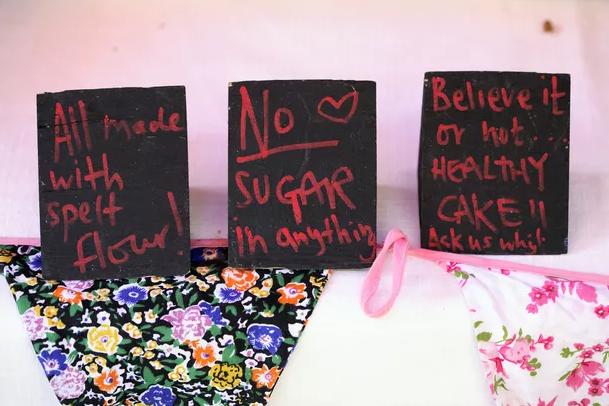 All made
with
spelt
flour!
No ♡
SUGAR
in anything
Believe it
or not...
HEALTHY
CAKE!!
Ask us why!